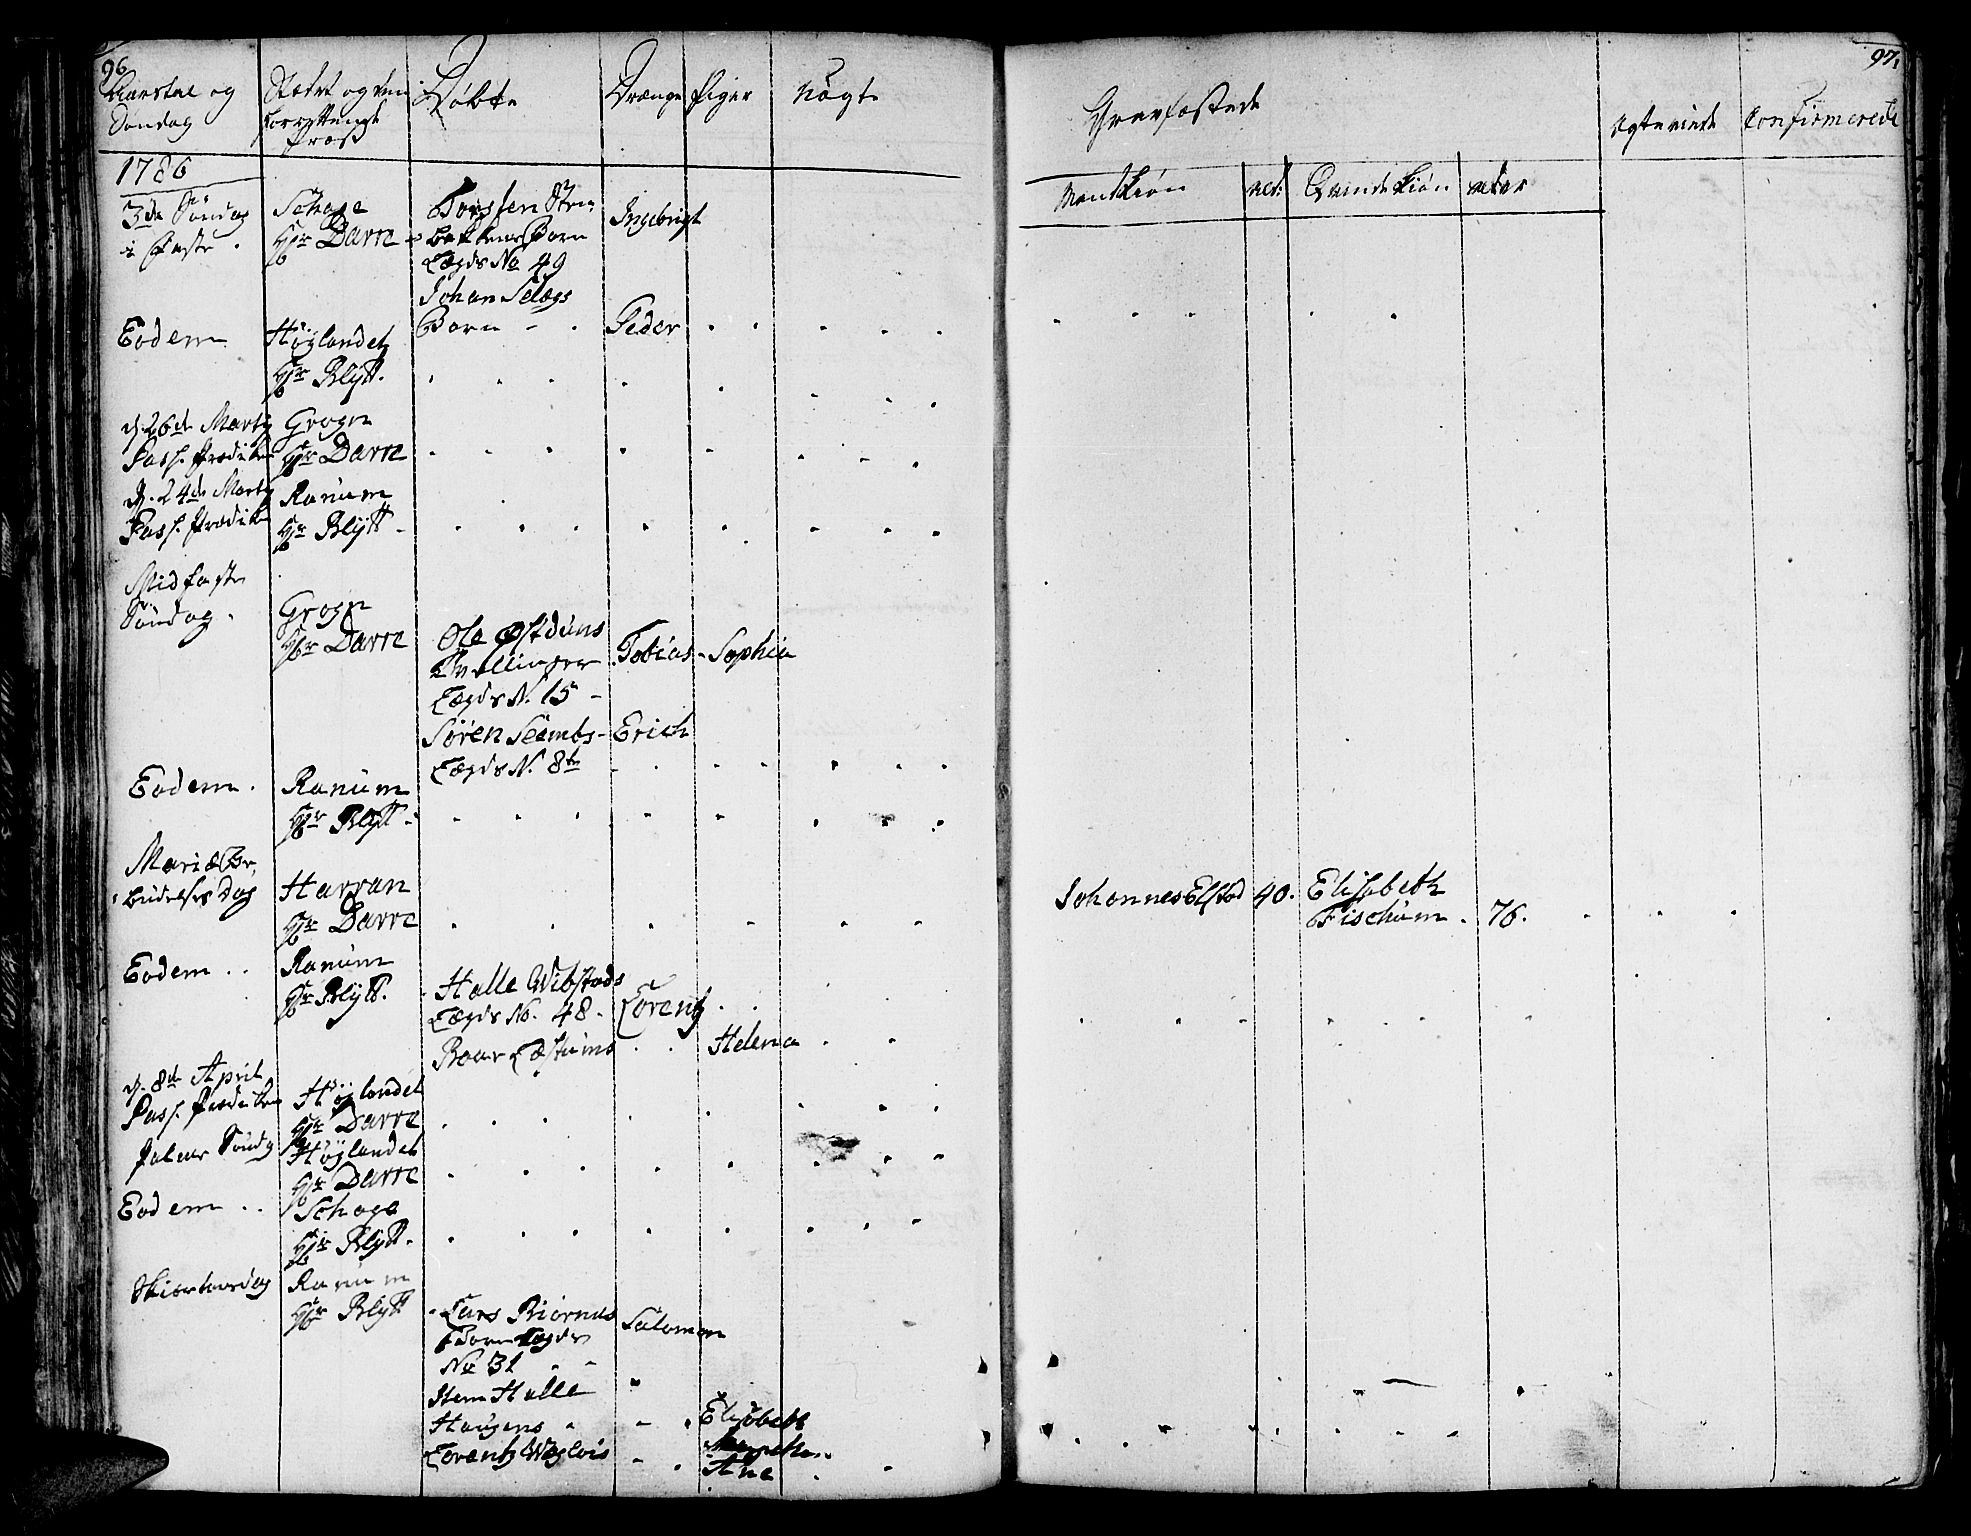 96
Aarstal og
Søndag
Stædet og den
forrettende
Præst
Døbte
Drænge
Piger
Uægte
1786
3de Søndag
i Faste.
Schage
Hr Darre
Torsten
Børn
Lægds No 49
Ingebrigt
Johan Selægs
Børn
Peder
Eodem
Høÿlandet
Hr Blÿtt.
d. 26de Martÿ
Pass. Prædiken
Grogn
Hr Darre
d. 24de Martÿ
Pass. Prædiken
Ranum
Hr Blÿtt
Midfaste
Søndag.
Grogn
Hr Darre
Ole Østduns
Tvellinger
Lægds N. 15
Tobias
Sophia
Søren Seembs
Lægds N. 8te
Erich
Eodem.
Ranum
Hr Blÿtt
Mariæ Be-
budelses Dag
Harran
Hr Darre
Eodem
Ranum
Hr Blÿtt.
Halle Wibstads
Lægds No. 48.
Lorentz
Roar Læstums
Helena
d. 8de April
Pass. Prædiken
Høÿlandet
Hr Darre
Palme Søndag
Høÿlandet
Hr Darre
Eodem
Schage
Hr Blÿtt.
Skiærtorsdag
Ranum
Hr Blÿtt
Lars Biørnes
Børn Lægds
No 31
Salomon
Item Halle
Haugens
Elisabeth
Lorentz Wægløis
Ane
97.
Gravfæstede
Ægteviede
Confirmerede
Mandkiøn
alder
Qvindekiøn
alder
Johannes Elstad
40.
Elisabeth
Fischum
76.